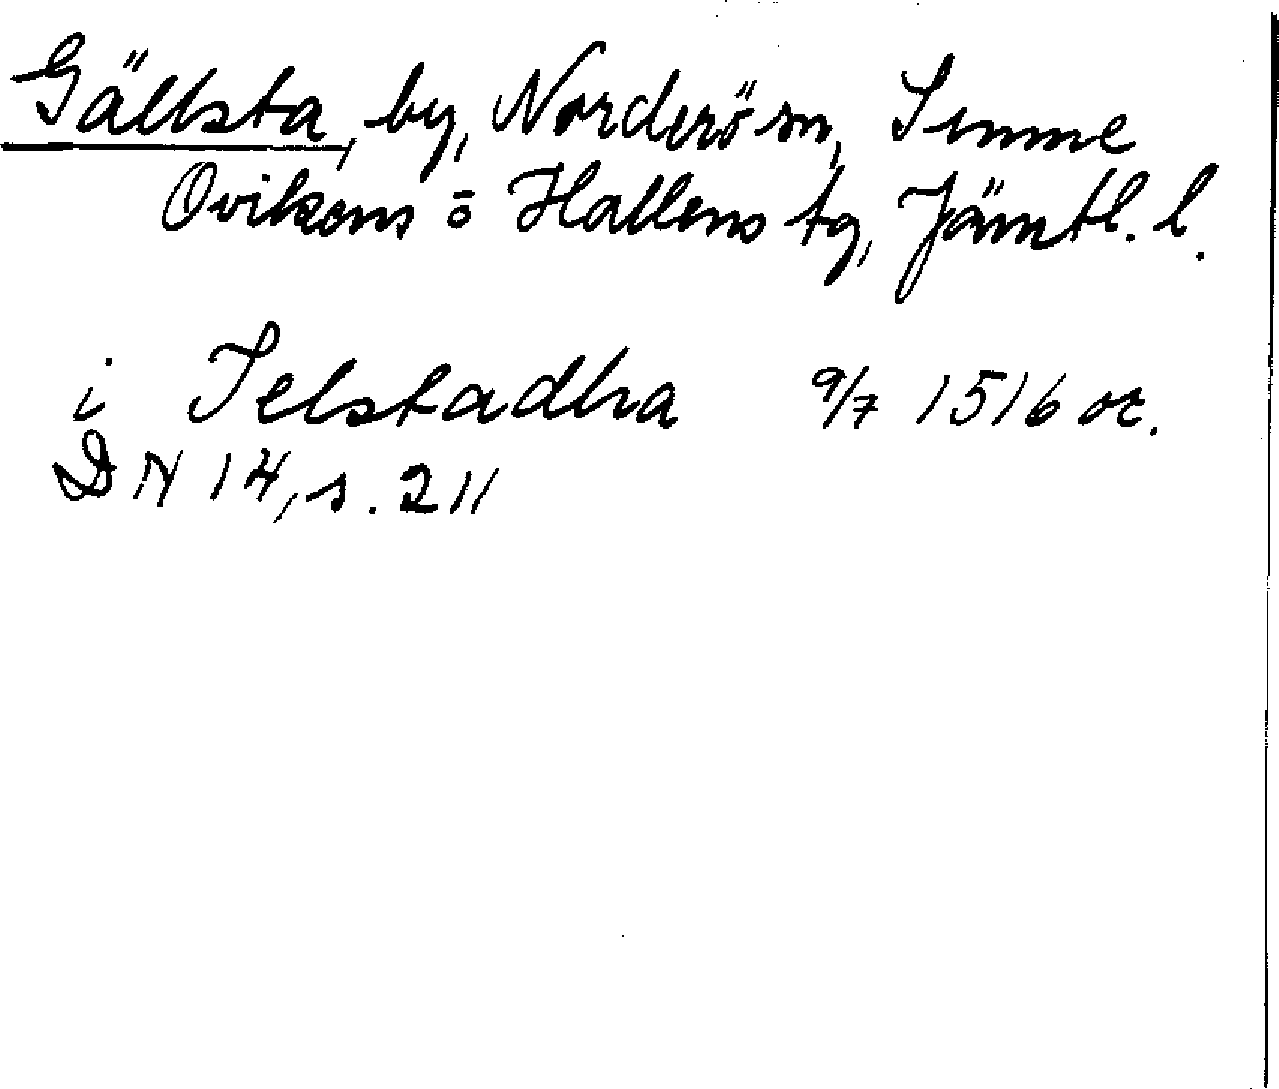 Gällsta, by, Norderö sn, Sunne
Ovikens o Hallens tg, Jämtl. l.
i Jelstadha 9/7 1516 or.
DN 14, s. 211